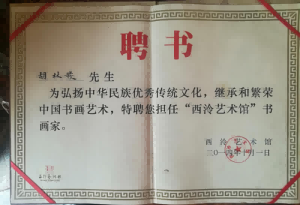 聘书
先生
为弘扬中华民族优秀传统文化，继承和繁荣
中国书画艺术，特聘您担任“西泠艺术馆”书
画家。
西泠艺术馆